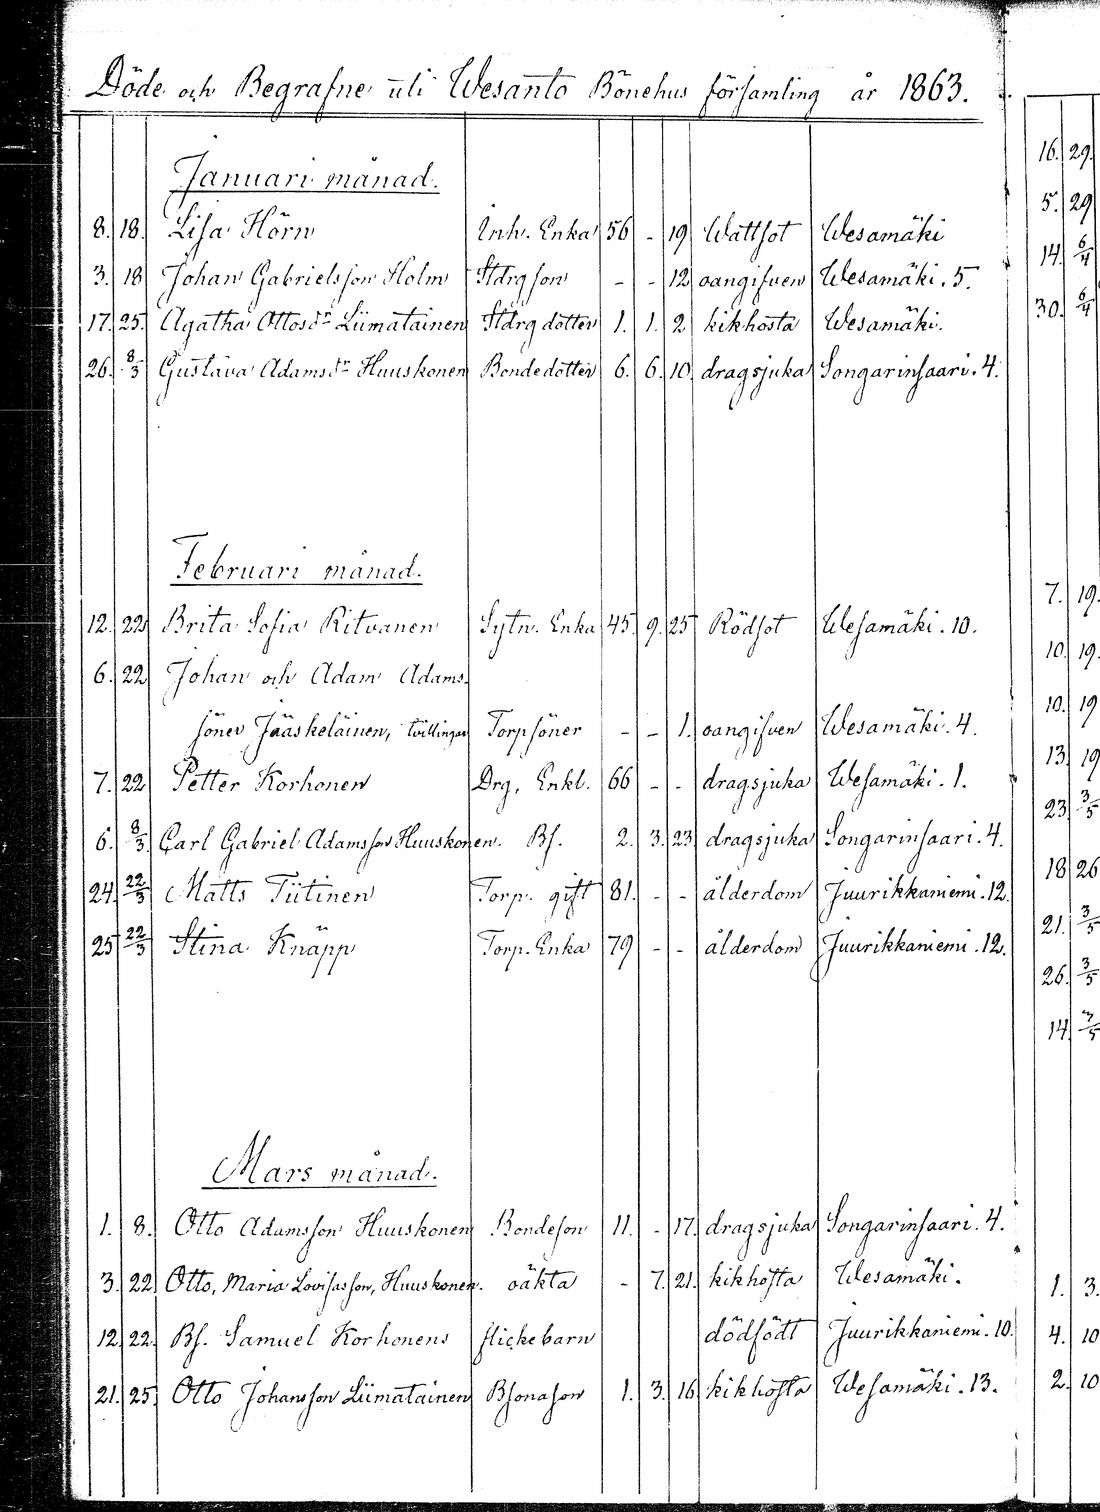 Döde och Begrafne uti Wesanto Bönehus församling år 1863.
Januari månad.
8. 18. Lisa Hörn Inh. Enka 56 - 19 Wattsot Wesamäki
3. 18 Johan Gabrielsson Holm Stdrgson - - 12 oangifven Wesamäki. 5.
17. 25. Agatha Ottosdr Liimatainen Stdrg dotter 1. 1. 2 kikhosta Wesamäki.
26. 8/3 Gustava Adamsdr Huuskonen Bondedotter 6. 6. 10. dragsjuka Songarinsaari. 4.
Februari månad.
12. 22 Brita Sofia Ritvanen Sytn. Enka 45 9. 25 Rödsot Wesamäki. 10.
6. 22 Johan och Adam Adams-
söner Jääskeläinen, tvillingar Torpsöner - - 1. oangifven Wesamäki. 4.
7. 22 Petter Korhonen Drg, Enkl. 66 - - dragsjuka Wesamäki. 1.
6. 8/3 Carl Gabriel Adamsson Huuskonen. Bs. 2. 3. 23 dragsjuka Songarinsaari. 4.
24. 22/3 Matts Tiitinen Torp. gift 81. - - ålderdom Juurikkaniemi. 12.
25 22/3 Stina Knäpp Torp. Enka 79 - - ålderdom Juurikkaniemi. 12.
Mars månad.
1. 8. Otto Adamsson Huuskonen Bondeson 11. - 17. dragsjuka Songarinsaari. 4.
3. 22 Otto, Maria Lovisasson, Huuskonen. oäkta - 7. 21. kikhosta Wesamäki.
12. 22. Bs. Samuel Korhonens flickebarn dödfödt Juurikkaniemi. 10.
21. 25. Otto Johansson Liimatainen Bsonason 1. 3. 16. kikhosta Wesamäki. 13.
16. 29.
5. 29
14. 6/4
30. 6/4
7. 19.
10. 19.
10. 19
13. 19
23. 3/5
18 26
21. 3/5
26. 3/5
14. 3/5
1. 3.
4. 10
2. 10